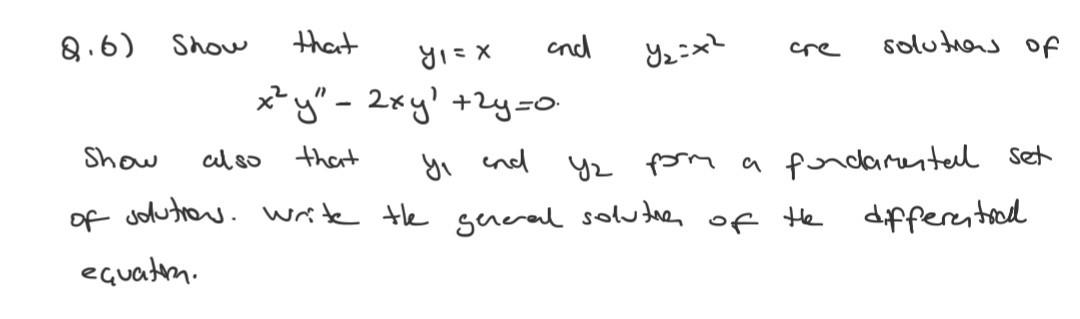 Q.6) Show that y₁ = x and y₂ = x² are solutions of
x² y" - 2xy' + 2y = 0.
Show also that y₁ and y₂ form a fundamental set
of solutions. Write the general solution of the differential
equation.